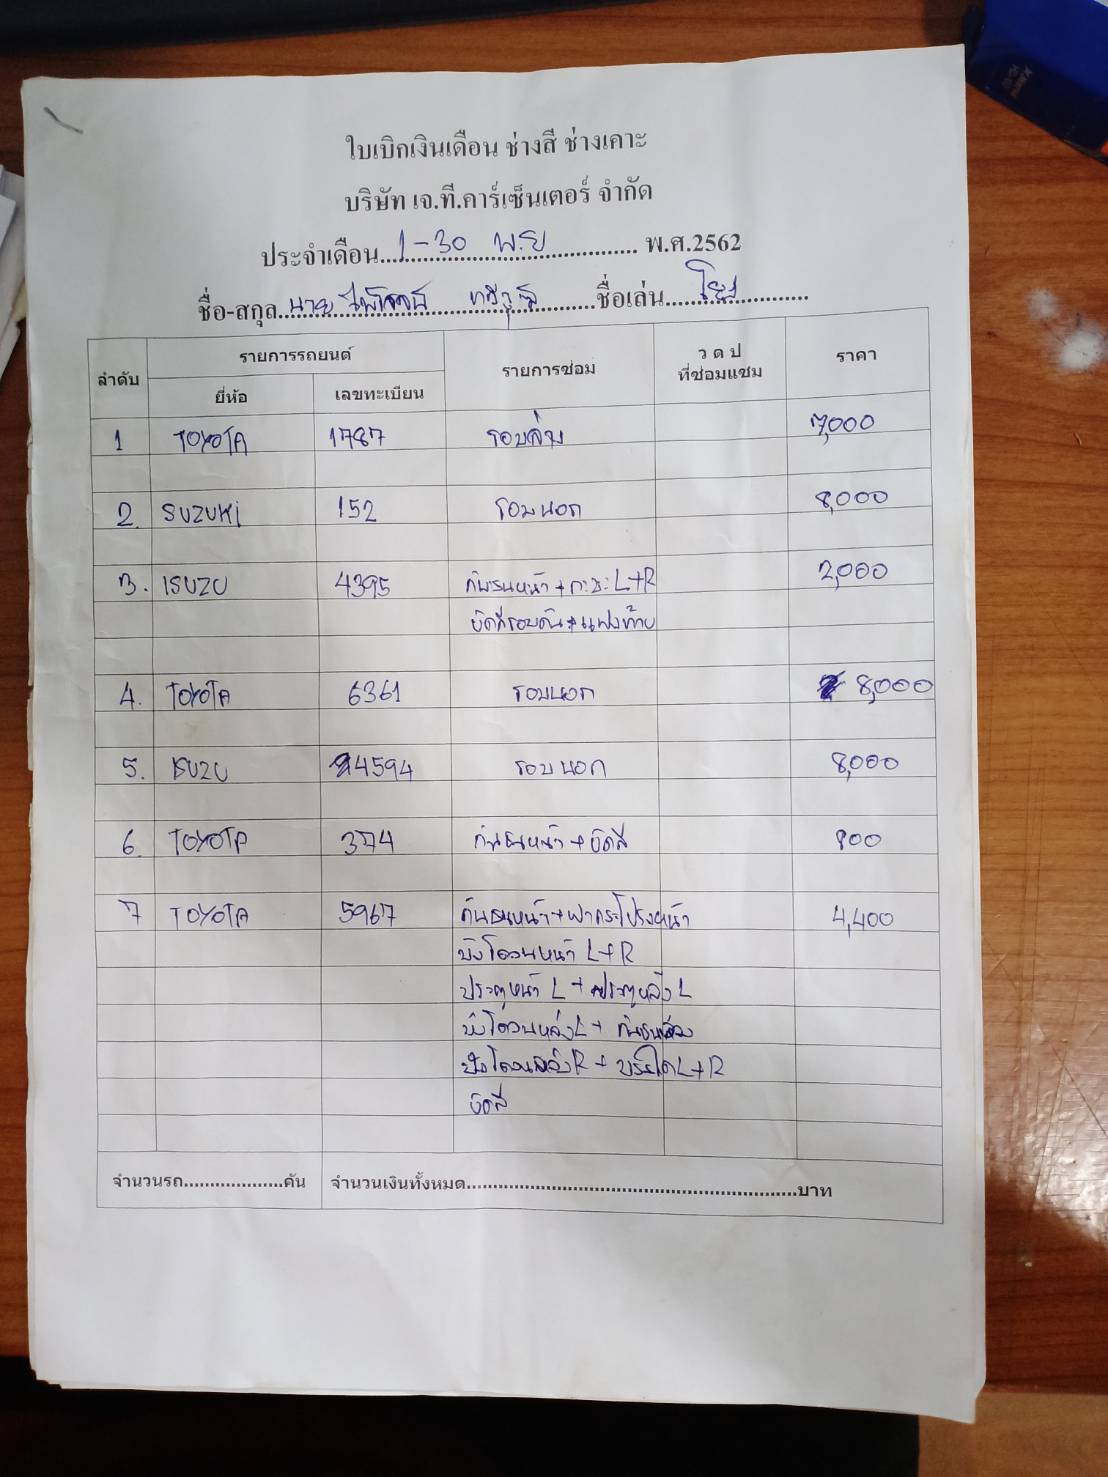 ใบเบิกเงินเดือน ช่างสี ช่างเคาะ
บริษัท เจ.ที.คาร์เซ็นเตอร์ จำกัด
ประจำเดือน...1-30 พ.ย.................. พ.ศ.2562
ชื่อ-สกุล..นาย...........ชื่อเล่น.............
ลำดับ รายการรถยนต์ รายการซ่อม ว ด ป ที่ซ่อมแซม ราคา
ยี่ห้อ เลขทะเบียน
1 TOYOTA 1787 7,000
2. SUZUKI 152 รอบนอก 8,000
3. ISUZU 4395 กันชนหน้า + L+R 2,000
4. TOYOTA 6361 รอบนอก 8,000
5. ISUZU 4594 รอบนอก 8,000
6. TOYOTA 374 กันชนหน้า + ขัดสี 800
7 TOYOTA 5967 กันชนหน้า+ฝากระโปรงหน้า 4,400
บังโคลนหน้า L+R
ประตูหน้า L + ประตูหลัง L
บังโคลนหลัง L + กันชนหลัง
บังโคลนหลัง R + บรรได L+R
ขัดสี
จำนวนรถ...................คัน จำนวนเงินทั้งหมด................................................................บาท